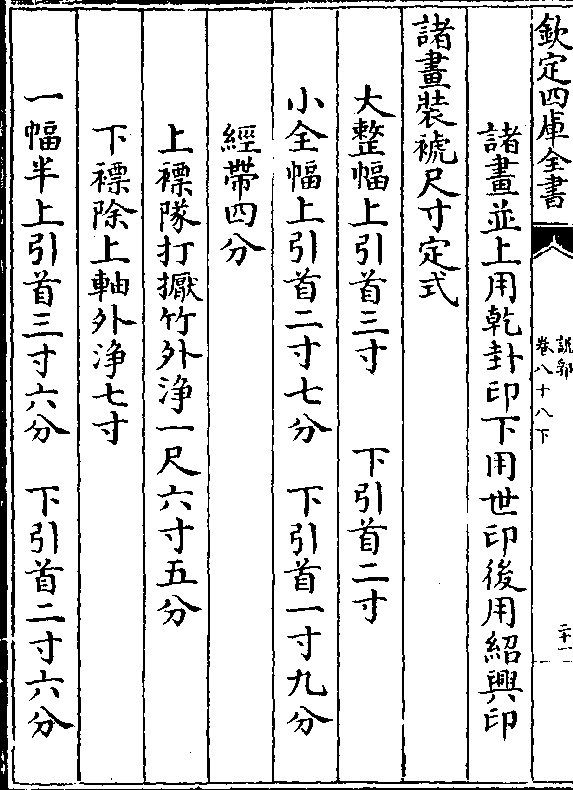 欽定四庫全書
說郛
卷八十八下
二十一
諸畫並上用乾卦印下用世印後用紹興印
諸畫裝褫尺寸定式
大整幅上引首三寸 下引首二寸
小全幅上引首二寸七分 下引首一寸九分
經帶四分
上褾隊打擫竹外淨一尺六寸五分
下褾除上軸外淨七寸
一幅半上引首三寸六分 下引首二寸六分